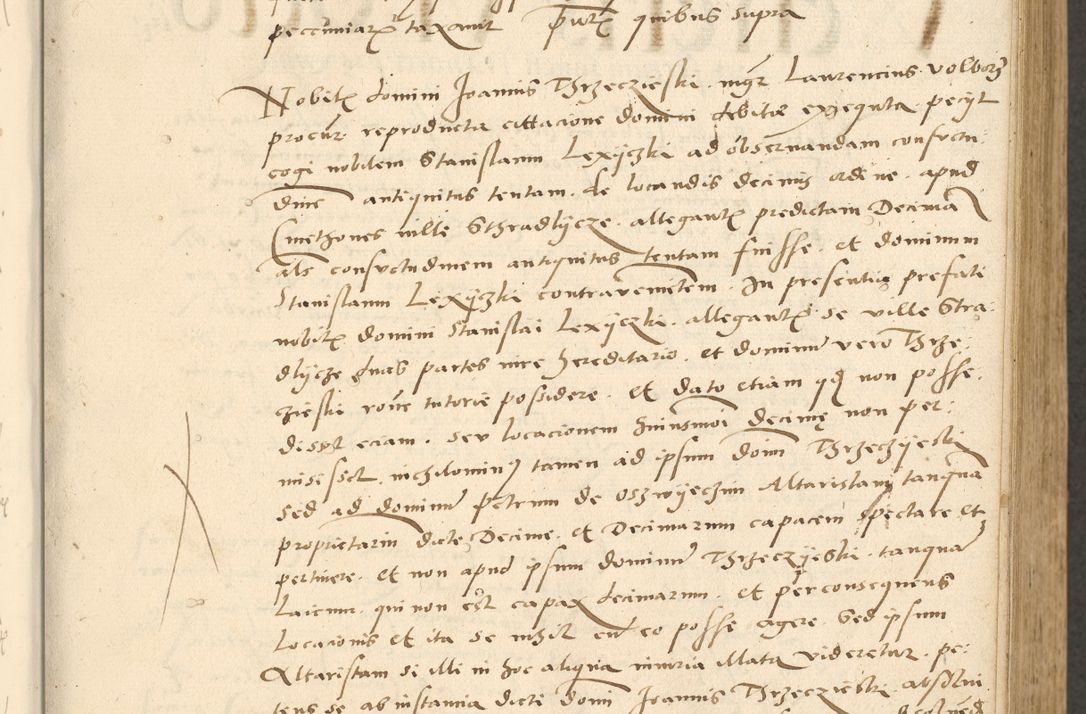 peccuniarum taxavit put quibus supra
Nobilis domini Joannis Thrzeczieski mgr Laurencius Volvorz
procur reproducta cittacione domini debitae exequta pecyt
cogi nobilem Stanislaum Lexyczki ad observandam consvetu:
dine antiquitus tentam de locandis decimis ordine apud
Cmethones ville Sthradlycze allegantis predictam Decima
als consvetudinem antiquitus tentam fuisse et dominum
Stanislaum Lexyczki contravenientem. In presentia prefati
nobilis domini Stanislai Lexyczki allegantis se ville Stra:
dlycze duas partes iure hereditario et dominum vero Thrze:
czieski rone tutorie possidere. Et dato etiam quod non posse:
disset eciam seu locacionem huiusmoi decime non per:
misisset nichilominus tamen ad ipsum domi Thrzeczyeski
sed ad dominum Petrum de Oszwyeczim Altaristam tanqua
proprietarium dicte Decime et Decimarum capacem spectare et
pertinere. Et non apud ipsum dominum Thrzeczyeski tanquam
Laicum qui non est capax decimarum et per consequens
Locacionis et ita se nihil cum eo posse agere. Sed ipsum
Altaristam si illi in hoc aliqua iniuria illata videretur pe:
tens se ab instantia dicti domi Joannis Thrzeczieski absolvi